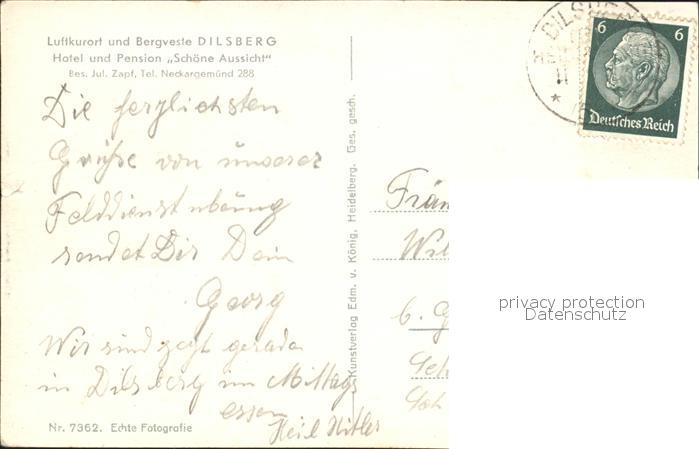 Luftkurort und Bergveste DILSBERG
Hotel und Pension „Schöne Aussicht"
Bes. Jul. Zapf, Tel. Neckargemünd 288
Die herzlichsten
Grüße von unserer
Felddienstübung
sendet Dir Dein
Georg
Wir sind jetzt gerade
in Dilsberg im Mittags
essen
Heil Hitler
Nr. 7362. Echte Fotografie
Kunstverlag Edm. v. König, Heidelberg. Ges. gesch.
DILSBE
6 6
Deutsches Reich
Frän
Wil
b. G
privacy protection
Datenschutz